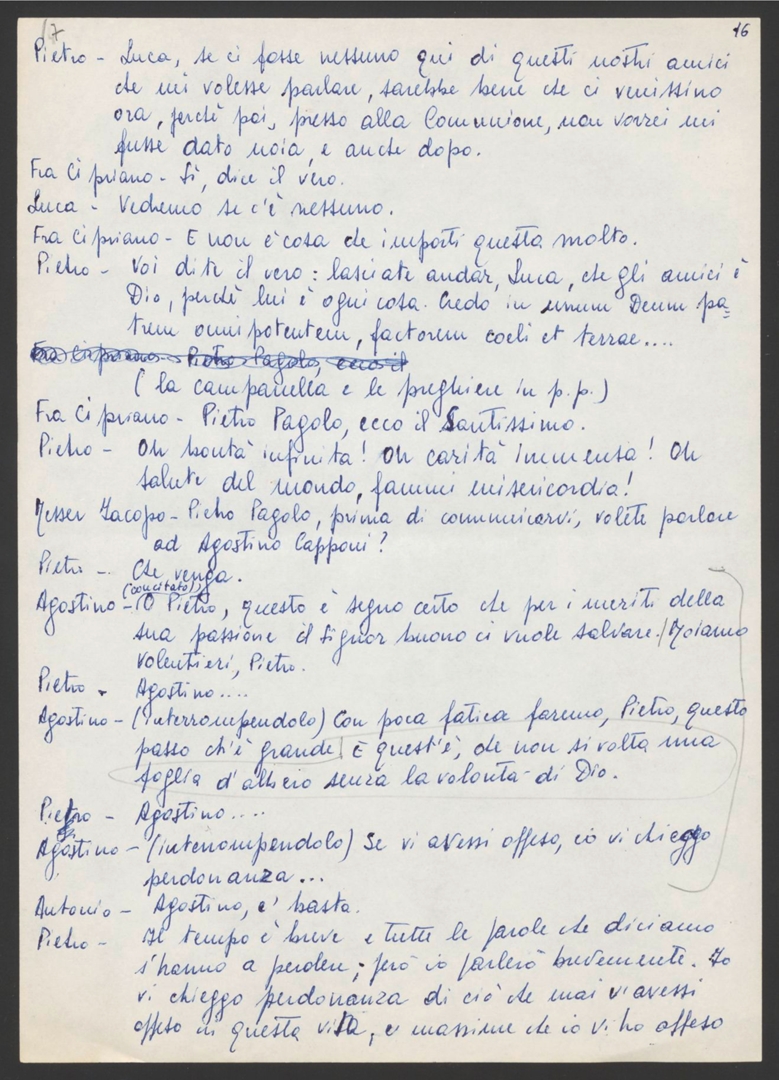 17
16
Pietro - Luca, se ci fosse nessuno qui di questi nostri amici
che mi volesse parlare, sarebbe bene che ci venissino
ora, perchè poi, presso alla Comunione, non vorrei mi
fusse dato noia, e anche dopo.
Fra Cipriano - Sì, dice il vero.
Luca - Vedremo se c'è nessuno.
Fra Cipriano - E non è cosa che importi questa molto.
Pietro - Voi dite il vero: lasciate andàr, Luca, che gli amici è
Dio, perchè lui è ogni cosa. Credo in unum Deum pa=
trem omnipotentem, factorem coeli et terrae....
Fra Cipriano - Pietro Pagolo, ecco il
(la campanella e le preghiere in p.p.)
Fra Cipriano - Pietro Pagolo, ecco il Santissimo.
Pietro - Oh bontà infinita! Oh carità immensa! Oh
salute del mondo, fammi misericordia!
Messer Jacopo - Pietro Pagolo, prima di comunicarvi, volete parlare
ad Agostino Capponi?
Pietro - Che venga.
(concitato)
Agostino - O Pietro, questo è segno certo che per i meriti della
sua passione il Signor buono ci vuole salvare. / Moiamo
volentieri, Pietro.
Pietro - Agostino....
Agostino - (interrompendolo) Con poca fatica faremo, Pietro, questo
passo ch'è grande. E quest'è, che non si volta una
foglia d'albero senza la volontà di Dio.
Pietro - Agostino....
Agostino - (interrompendolo) Se vi avessi offeso, io vi chieggo
perdonanza...
Antonio - Agostino, e' basta.
Pietro - Il tempo è breve e tutte le parole che diciamo
s'hanno a perdere; però io parlerò brevemente. Io
vi chieggo perdonanza di ciò che mai v'avessi
offeso in questa vita, e massime che io vi ho offeso